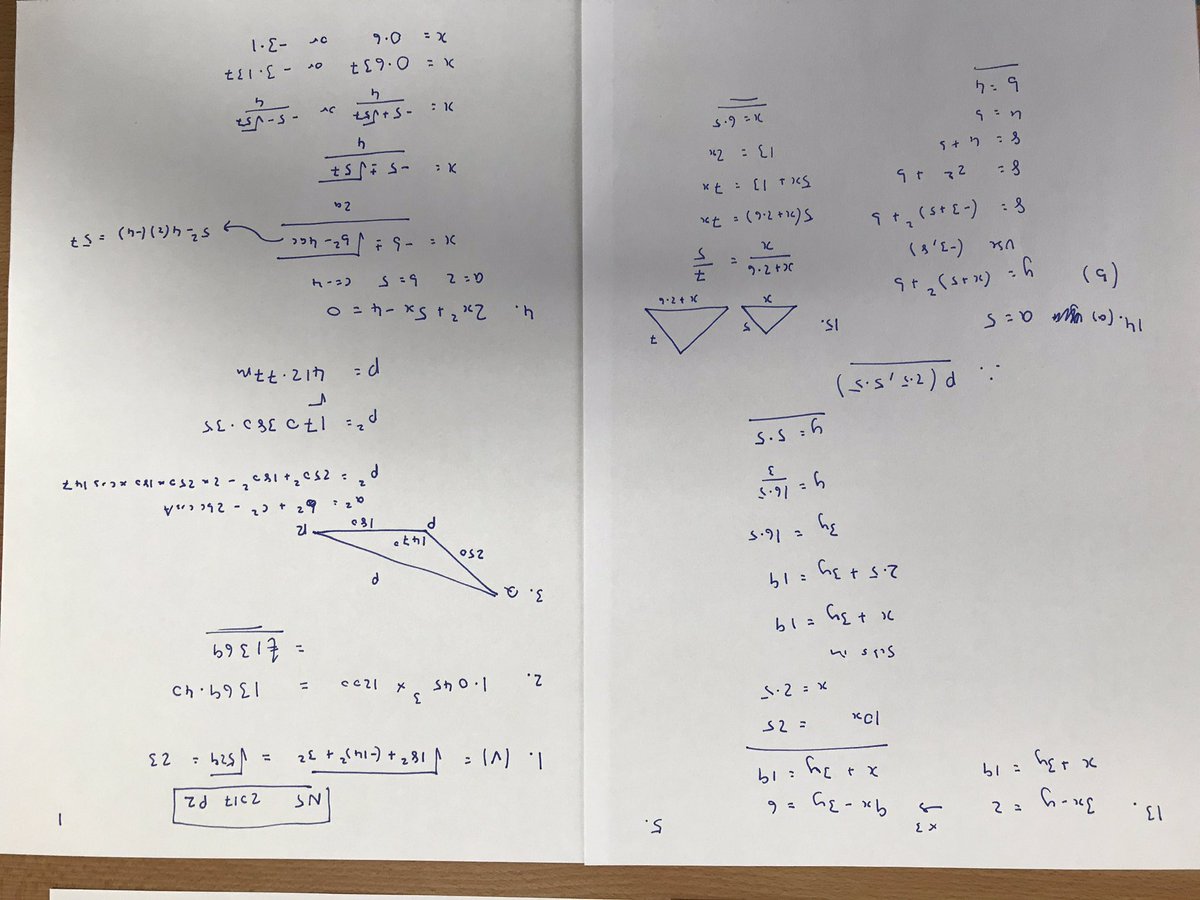 1
N5 2017 P2
1. |V| = √18² + (-14)² + 3² = √529 = 23
2. 1.045³ × 1200 = 1369.40
= £1369
3. Q
250
P
147°
P
180
R
a² = b² + c² - 2bc cos A
p² = 250² + 180² - 2 × 250 × 180 × cos 147
p² = 170380.35
√
p = 412.77m
4. 2x² + 5x - 4 = 0
a = 2 b = 5 c = -4
x = -b ± √b² - 4ac
2a
5² - 4(2)(-4) = 57
x = -5 ± √57
4
x = -5 + √57 or -5 - √57
4 4
x = 0.637 or -3.137
x = 0.6 or -3.1
5.
13. 3x - y = 2 ×3 → 9x - 3y = 6
x + 3y = 19 x + 3y = 19
10x = 25
x = 2.5
Subs in
x + 3y = 19
2.5 + 3y = 19
3y = 16.5
y = 16.5
3
y = 5.5
∴ P (2.5, 5.5)
14. (a) a = 5
(b) y = (x+5)² + b
use (-3, 8)
8 = (-3+5)² + b
8 = 2² + b
8 = 4 + b
4 = b
b = 4
15.
5
x
7
x + 2.6
x + 2.6 = 7
x 5
5(x + 2.6) = 7x
5x + 13 = 7x
13 = 2x
x = 6.5